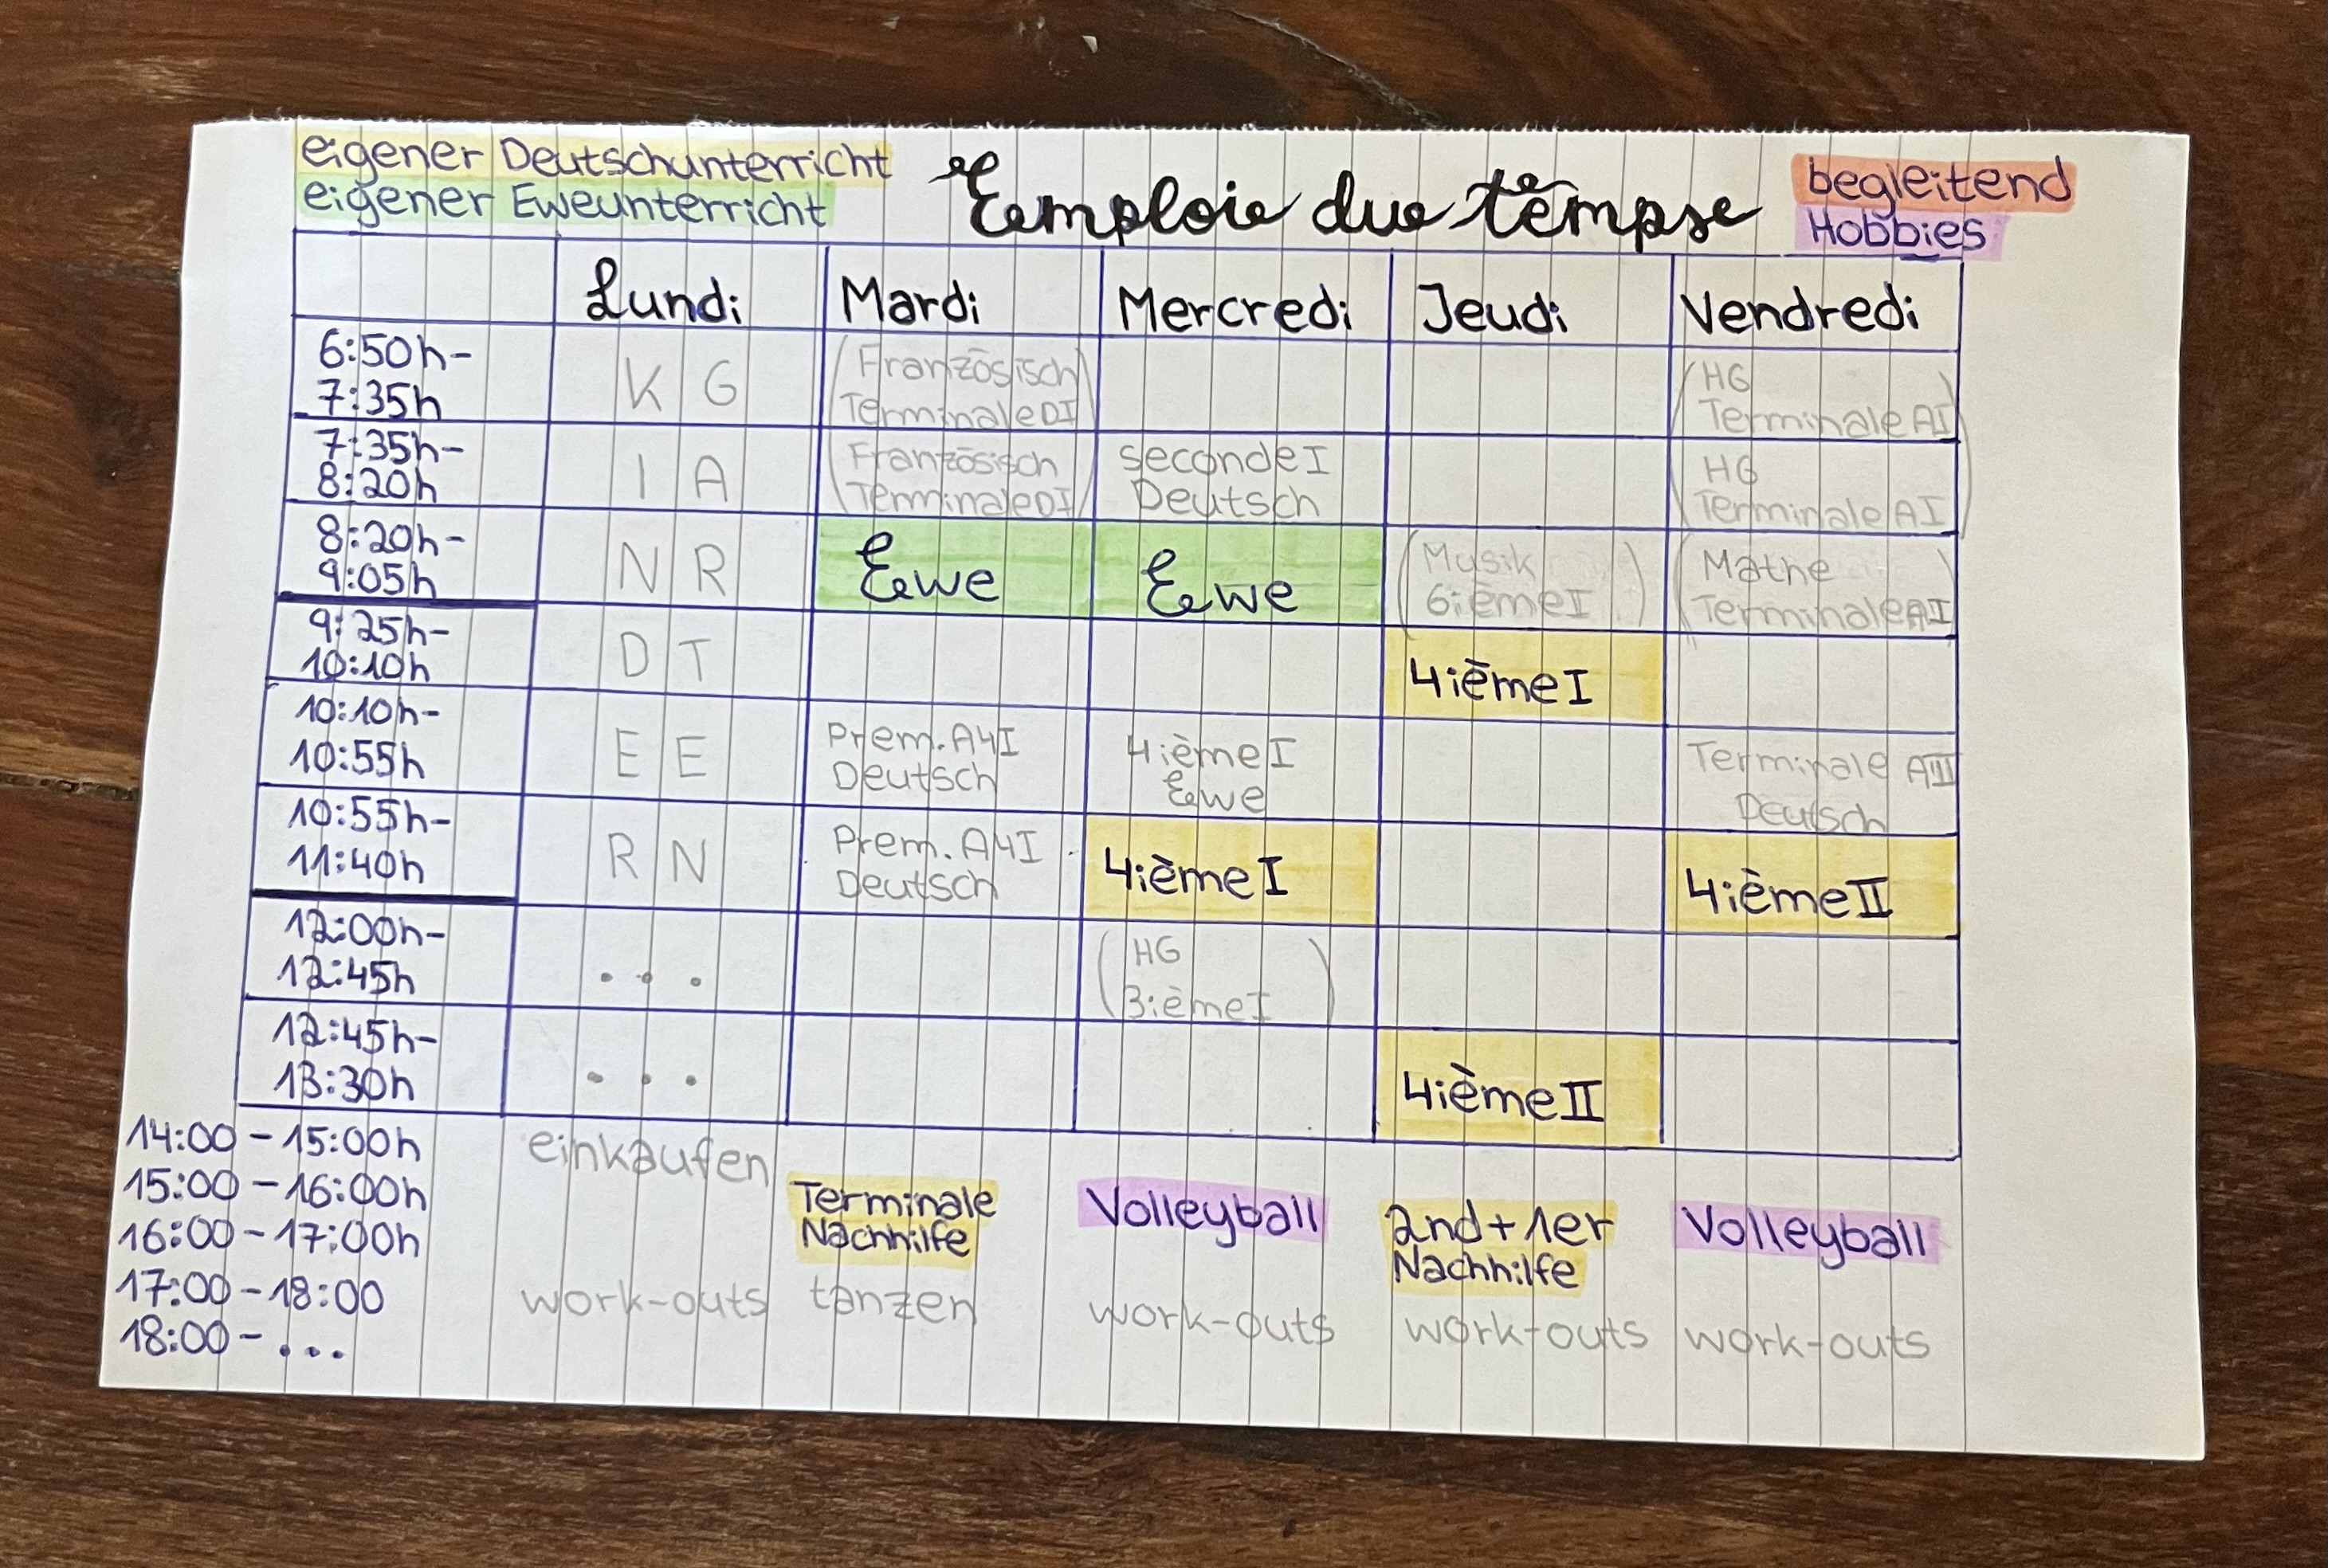 eigener Deutschunterricht
eigener Eweunterricht
Emploie due tempse
begleitend
Hobbies
Lundi Mardi Mercredi Jeudi Vendredi
6:50h-
7:35h
K G
(Französisch
TerminaleDI)
(HG
Terminale AI)
7:35h-
8:20h
I A
(Französisch
TerminaleDI)
secondeI
Deutsch
HG
Terminale AI)
8:20h-
9:05h
N R
Ewe
Ewe
(Musik
6ièmeI)
(Mathe
Terminale AI)
9:25h-
10:10h
D T
4ièmeI
10:10h-
10:55h
E E
Prem. A4I
Deutsch
4ièmeI
Ewe
Terminale AIII
Deutsch
10:55h-
11:40h
R N
Prem. A4I
Deutsch
4ièmeI
4ièmeII
12:00h-
12:45h
...
(HG
3ièmeI)
12:45h-
13:30h
...
4ièmeII
14:00-15:00h einkaufen
15:00-16:00h
16:00-17:00h
Terminale
Nachhilfe
Volleyball
2nd+1er
Nachhilfe
Volleyball
17:00-18:00 work-outs tanzen work-outs work-outs work-outs
18:00-...